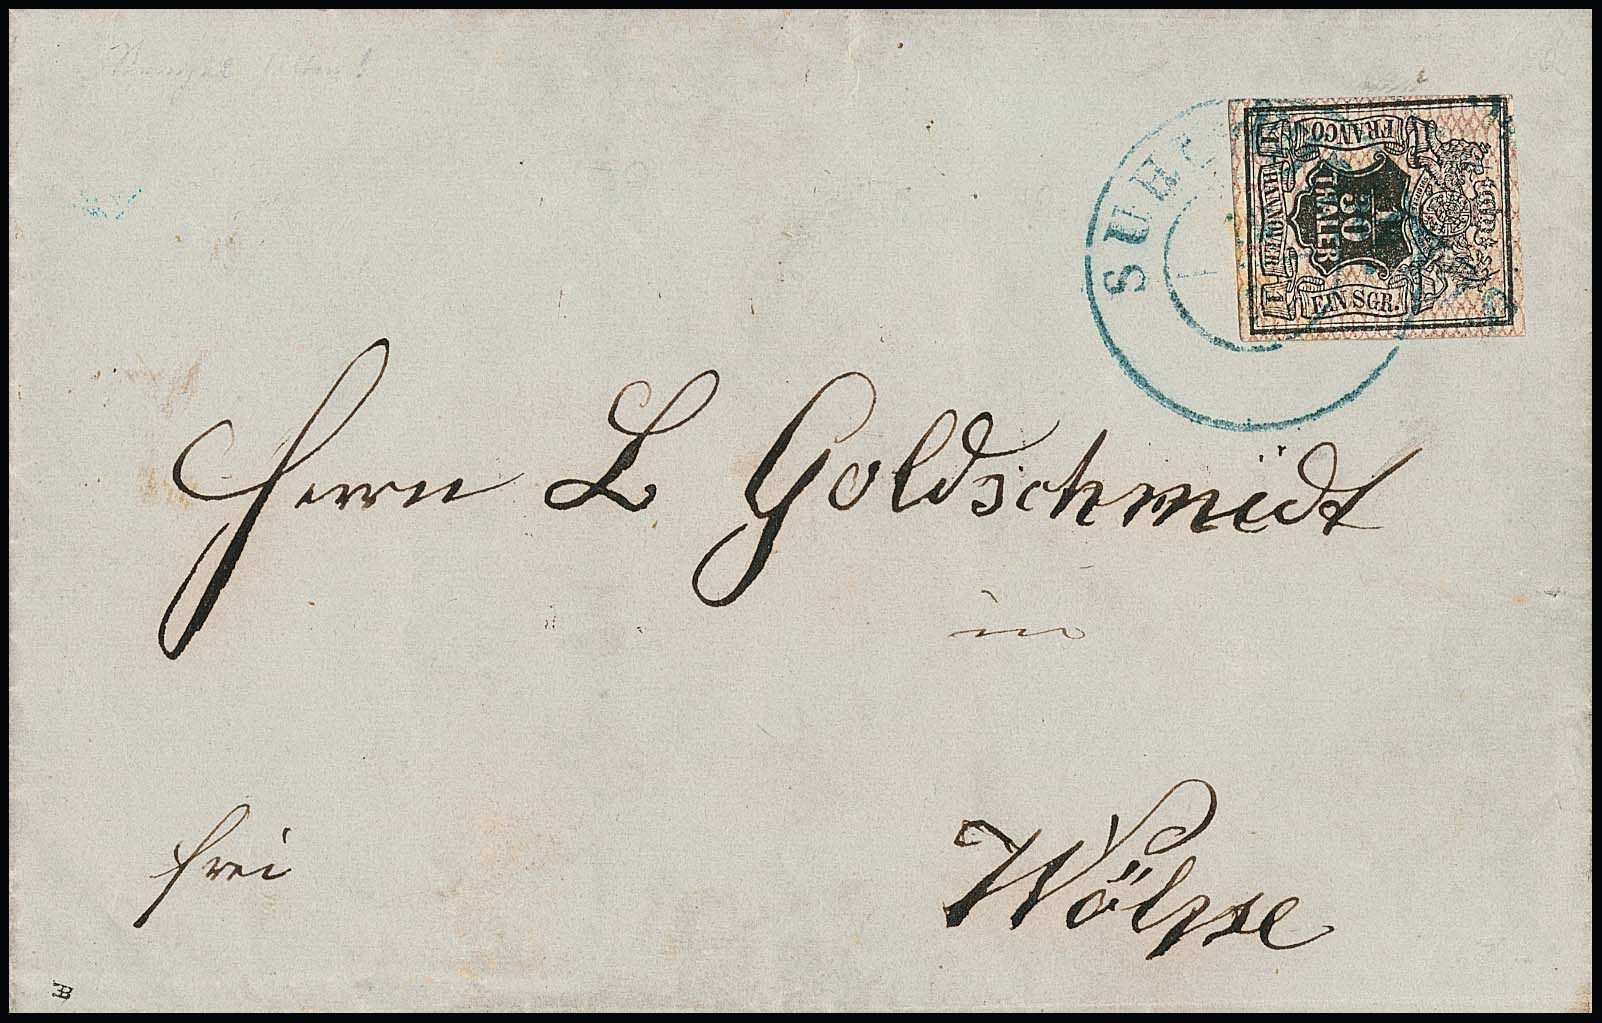 SUHL
FRANCO
HANNOVER
1
1/30
THALER
EIN SGR.
1
Herrn L Goldschmidt
in
frei
Wölpe